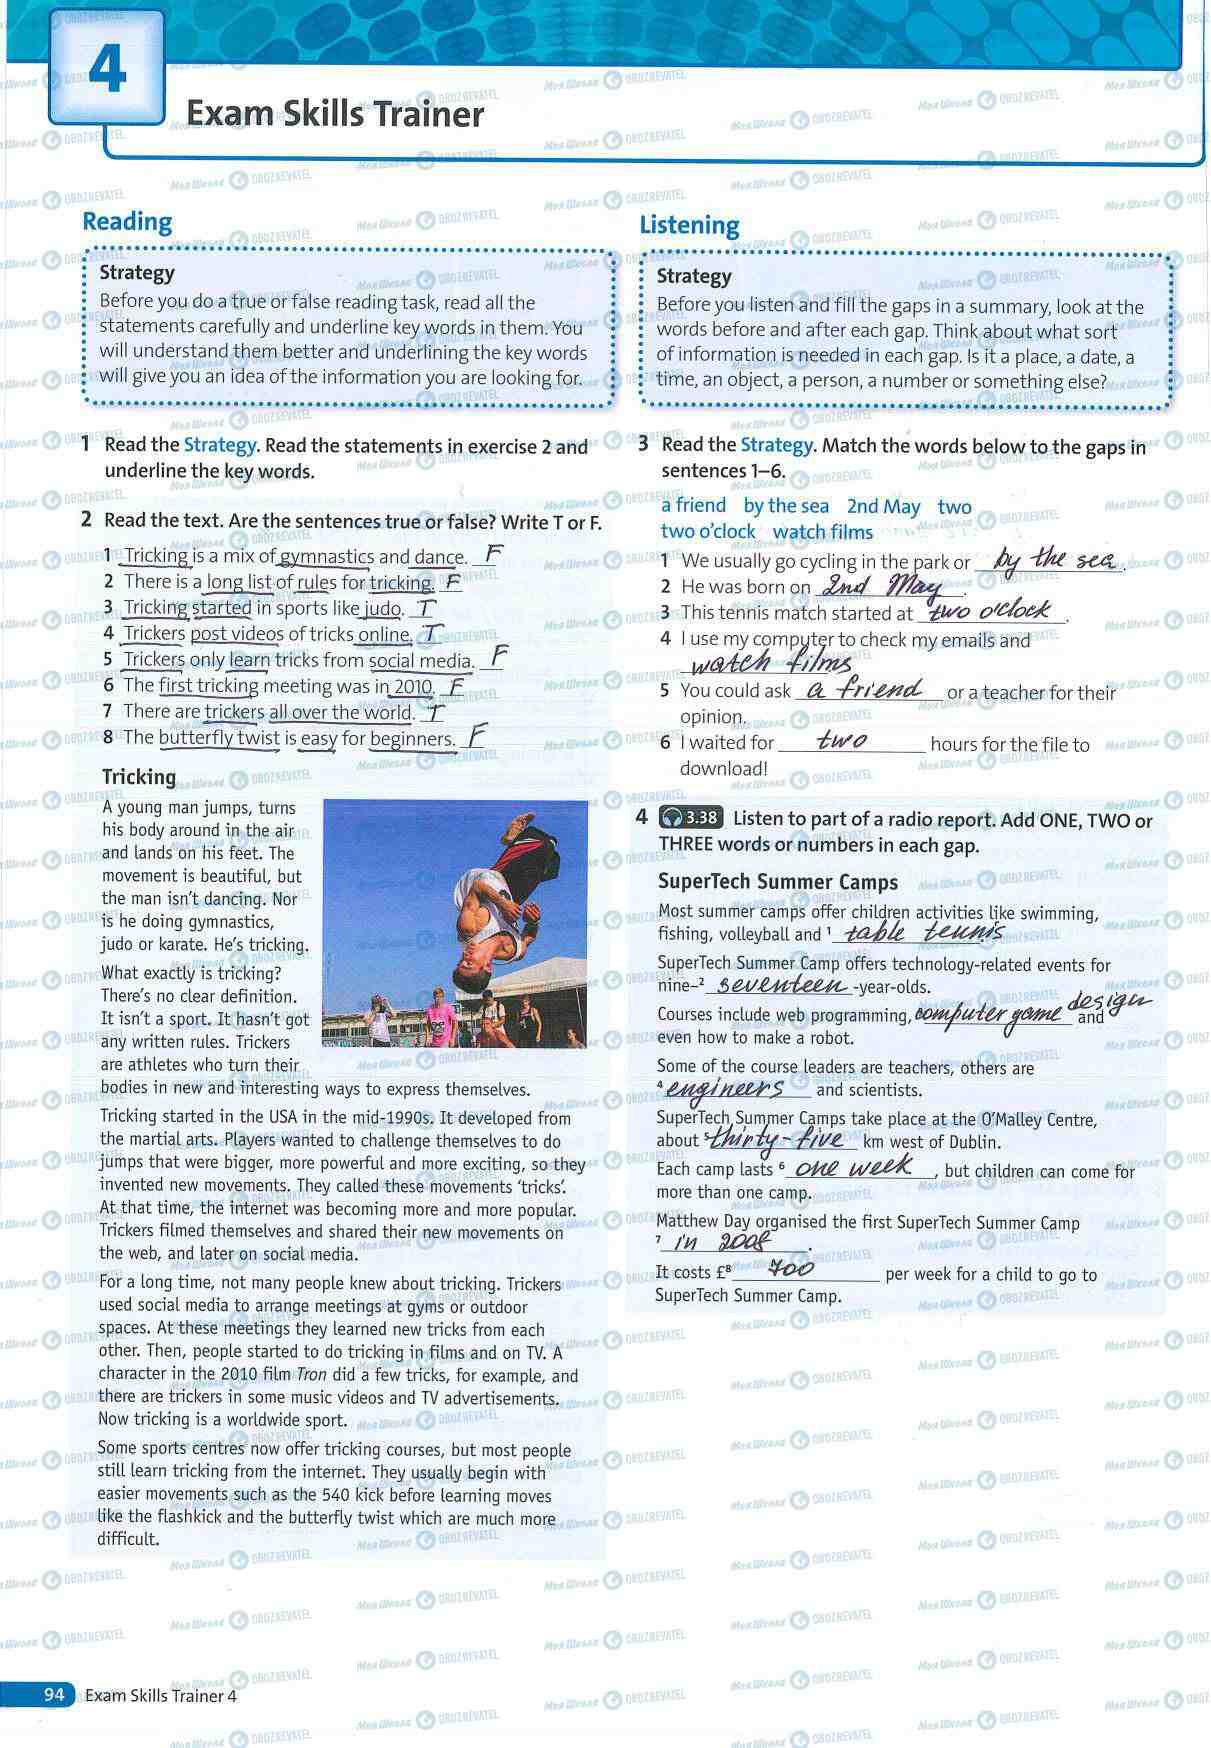 4
Exam Skills Trainer
Reading
Strategy
Before you do a true or false reading task, read all the
statements carefully and underline key words in them. You
will understand them better and underlining the key words
will give you an idea of the information you are looking for.
1 Read the Strategy. Read the statements in exercise 2 and
underline the key words.
2 Read the text. Are the sentences true or false? Write T or F.
1 Tricking is a mix of gymnastics and dance. F
2 There is a long list of rules for tricking. F
3 Tricking started in sports like judo. T
4 Trickers post videos of tricks online. T
5 Trickers only learn tricks from social media. F
6 The first tricking meeting was in 2010. F
7 There are trickers all over the world. T
8 The butterfly twist is easy for beginners. F
Tricking
A young man jumps, turns
his body around in the air
and lands on his feet. The
movement is beautiful, but
the man isn't dancing. Nor
is he doing gymnastics,
judo or karate. He's tricking.
What exactly is tricking?
There's no clear definition.
It isn't a sport. It hasn't got
any written rules. Trickers
are athletes who turn their
bodies in new and interesting ways to express themselves.
Tricking started in the USA in the mid-1990s. It developed from
the martial arts. Players wanted to challenge themselves to do
jumps that were bigger, more powerful and more exciting, so they
invented new movements. They called these movements 'tricks'.
At that time, the internet was becoming more and more popular.
Trickers filmed themselves and shared their new movements on
the web, and later on social media.
For a long time, not many people knew about tricking. Trickers
used social media to arrange meetings at gyms or outdoor
spaces. At these meetings they learned new tricks from each
other. Then, people started to do tricking in films and on TV. A
character in the 2010 film Tron did a few tricks, for example, and
there are trickers in some music videos and TV advertisements.
Now tricking is a worldwide sport.
Some sports centres now offer tricking courses, but most people
still learn tricking from the internet. They usually begin with
easier movements such as the 540 kick before learning moves
like the flashkick and the butterfly twist which are much more
difficult.
Listening
Strategy
Before you listen and fill the gaps in a summary, look at the
words before and after each gap. Think about what sort
of information is needed in each gap. Is it a place, a date, a
time, an object, a person, a number or something else?
3 Read the Strategy. Match the words below to the gaps in
sentences 1–6.
a friend by the sea 2nd May two
two o'clock watch films
1 We usually go cycling in the park or by the sea.
2 He was born on 2nd May.
3 This tennis match started at two o'clock.
4 I use my computer to check my emails and
watch films
5 You could ask a friend or a teacher for their
opinion.
6 I waited for two hours for the file to
download!
4 3.38 Listen to part of a radio report. Add ONE, TWO or
THREE words or numbers in each gap.
SuperTech Summer Camps
Most summer camps offer children activities like swimming,
fishing, volleyball and 1 table tennis.
SuperTech Summer Camp offers technology-related events for
nine–2 seventeen -year-olds.
Courses include web programming, computer game design and
even how to make a robot.
Some of the course leaders are teachers, others are
4 engineers and scientists.
SuperTech Summer Camps take place at the O'Malley Centre,
about 5 thirty-five km west of Dublin.
Each camp lasts 6 one week, but children can come for
more than one camp.
Matthew Day organised the first SuperTech Summer Camp
7 in 2008.
It costs £8 700 per week for a child to go to
SuperTech Summer Camp.
94 Exam Skills Trainer 4
Моя Школа OBOZREVATEL